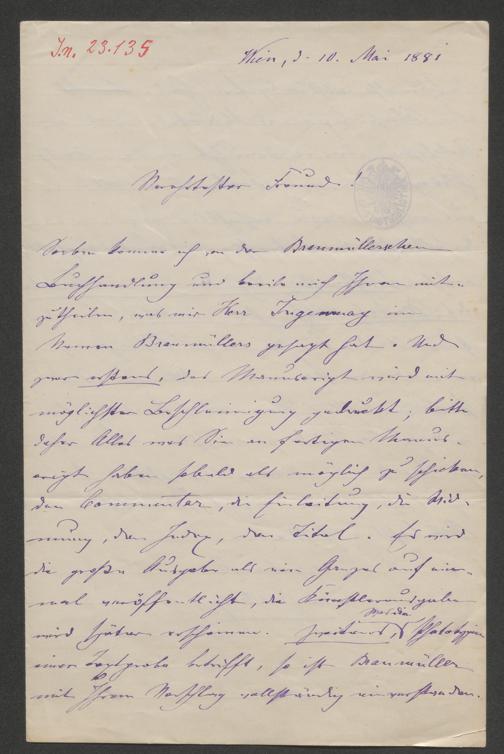 I.n. 23.135
Wien, d. 10. Mai 1881
Verehrtester Freund!
Soeben komme ich von der Braumüllerschen
Buchhandlung und beeile mich Ihnen mit-
zutheilen, was mir Herr Ingenmay im
Namen Braumüllers gesagt hat. Und
zwar erstens, das Manuscript wird mit
möglichster Beschleunigung gedruckt; bitte
daher Alles was Sie an fertigem Manus-
cript haben sobald als möglich zu schicken,
den Commentar, die Einleitung, die Wid-
mung, den Index, den Titel. Es wird
die große Ausgabe als ein Ganzes auf ein-
mal veröffentlicht, die Künstlerausgabe
wird später erscheinen. Zweitens was die Phototypie
einer Textprobe betrifft, so ist Braumüller
mit Ihrem Vorschlag vollständig einverstanden.